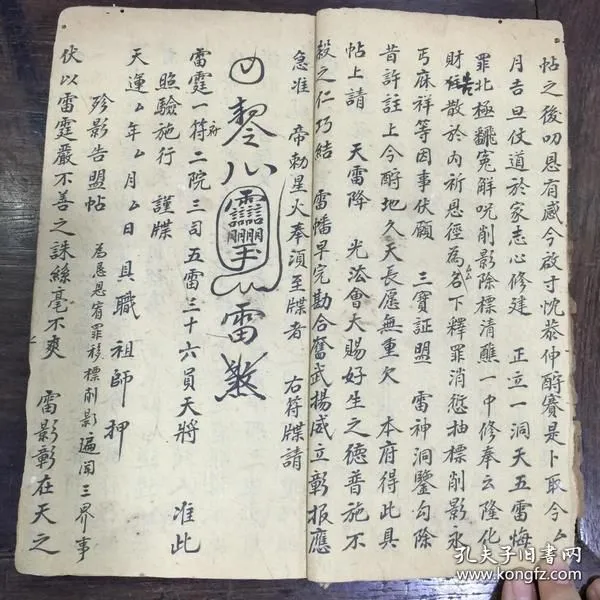 帖之後叨恩有感今啟寸忱恭伸酧賽是卜取今ム
月吉旦仗道於家志心修建　正立一洞天五雷悔
罪北極翻冤解呪削影除標清醮一中修奉云隆化
財告散於內祈恩徑為名ム下釋罪消愆抽標削影永
丐庥祥等因事伏願　三寶証盟　雷神洞鑒勾除
昔許註上今酧地久天長愿無重欠　本府得此具
帖上請　天雷降　光法會大賜好生之德普施不
殺之仁巧結　雷幡早完勘合奮武揚威立彰报應
急准　帝勅星火奉須至牒者　右符牒請
雷
雷霆一府符二院三司五雷三十六員天將　准此
照驗施行　謹牒
天運ム年ム月ム日具職　祖師押
殄影告盟帖　為恳恩宥罪移標削影遍闻三界事
伏以雷霆嚴不善之誅絲毫不爽　雷影彰在天之
孔夫子旧書网
www.kongfz.com